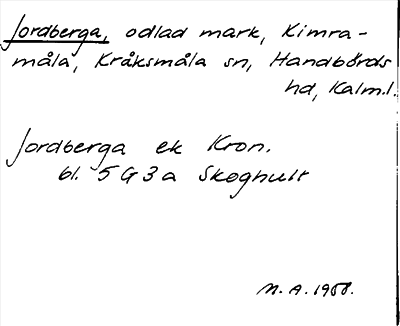 Jordberga, odlad mark, Kimra-
måla, Kråksmåla sn, Handbörds
hd, Kalm.l.
Jordberga ek Kron.
bl. 5 G 3 a Skoghult
M. A. 1958.